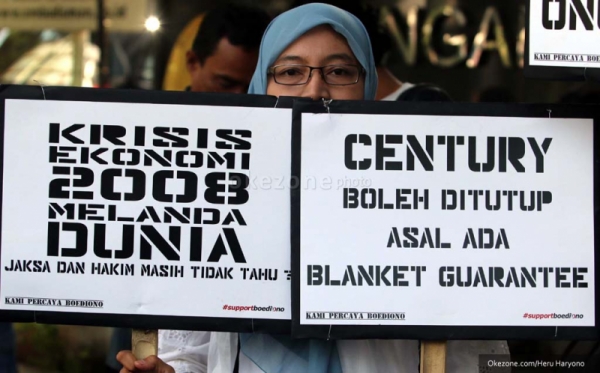 KRISIS
EKONOMI
2008
MELANDA
DUNIA
JAKSA DAN HAKIM MASIH TIDAK TAHU ?
KAMI PERCAYA BOEDIONO
#supportboediono
CENTURY
BOLEH DITUTUP
ASAL ADA
BLANKET GUARANTEE
KAMI PERCAYA BOEDIONO
#supportboediono
KAMI PERCAYA BOEDIONO
okezone photo
Okezone.com/Heru Haryono